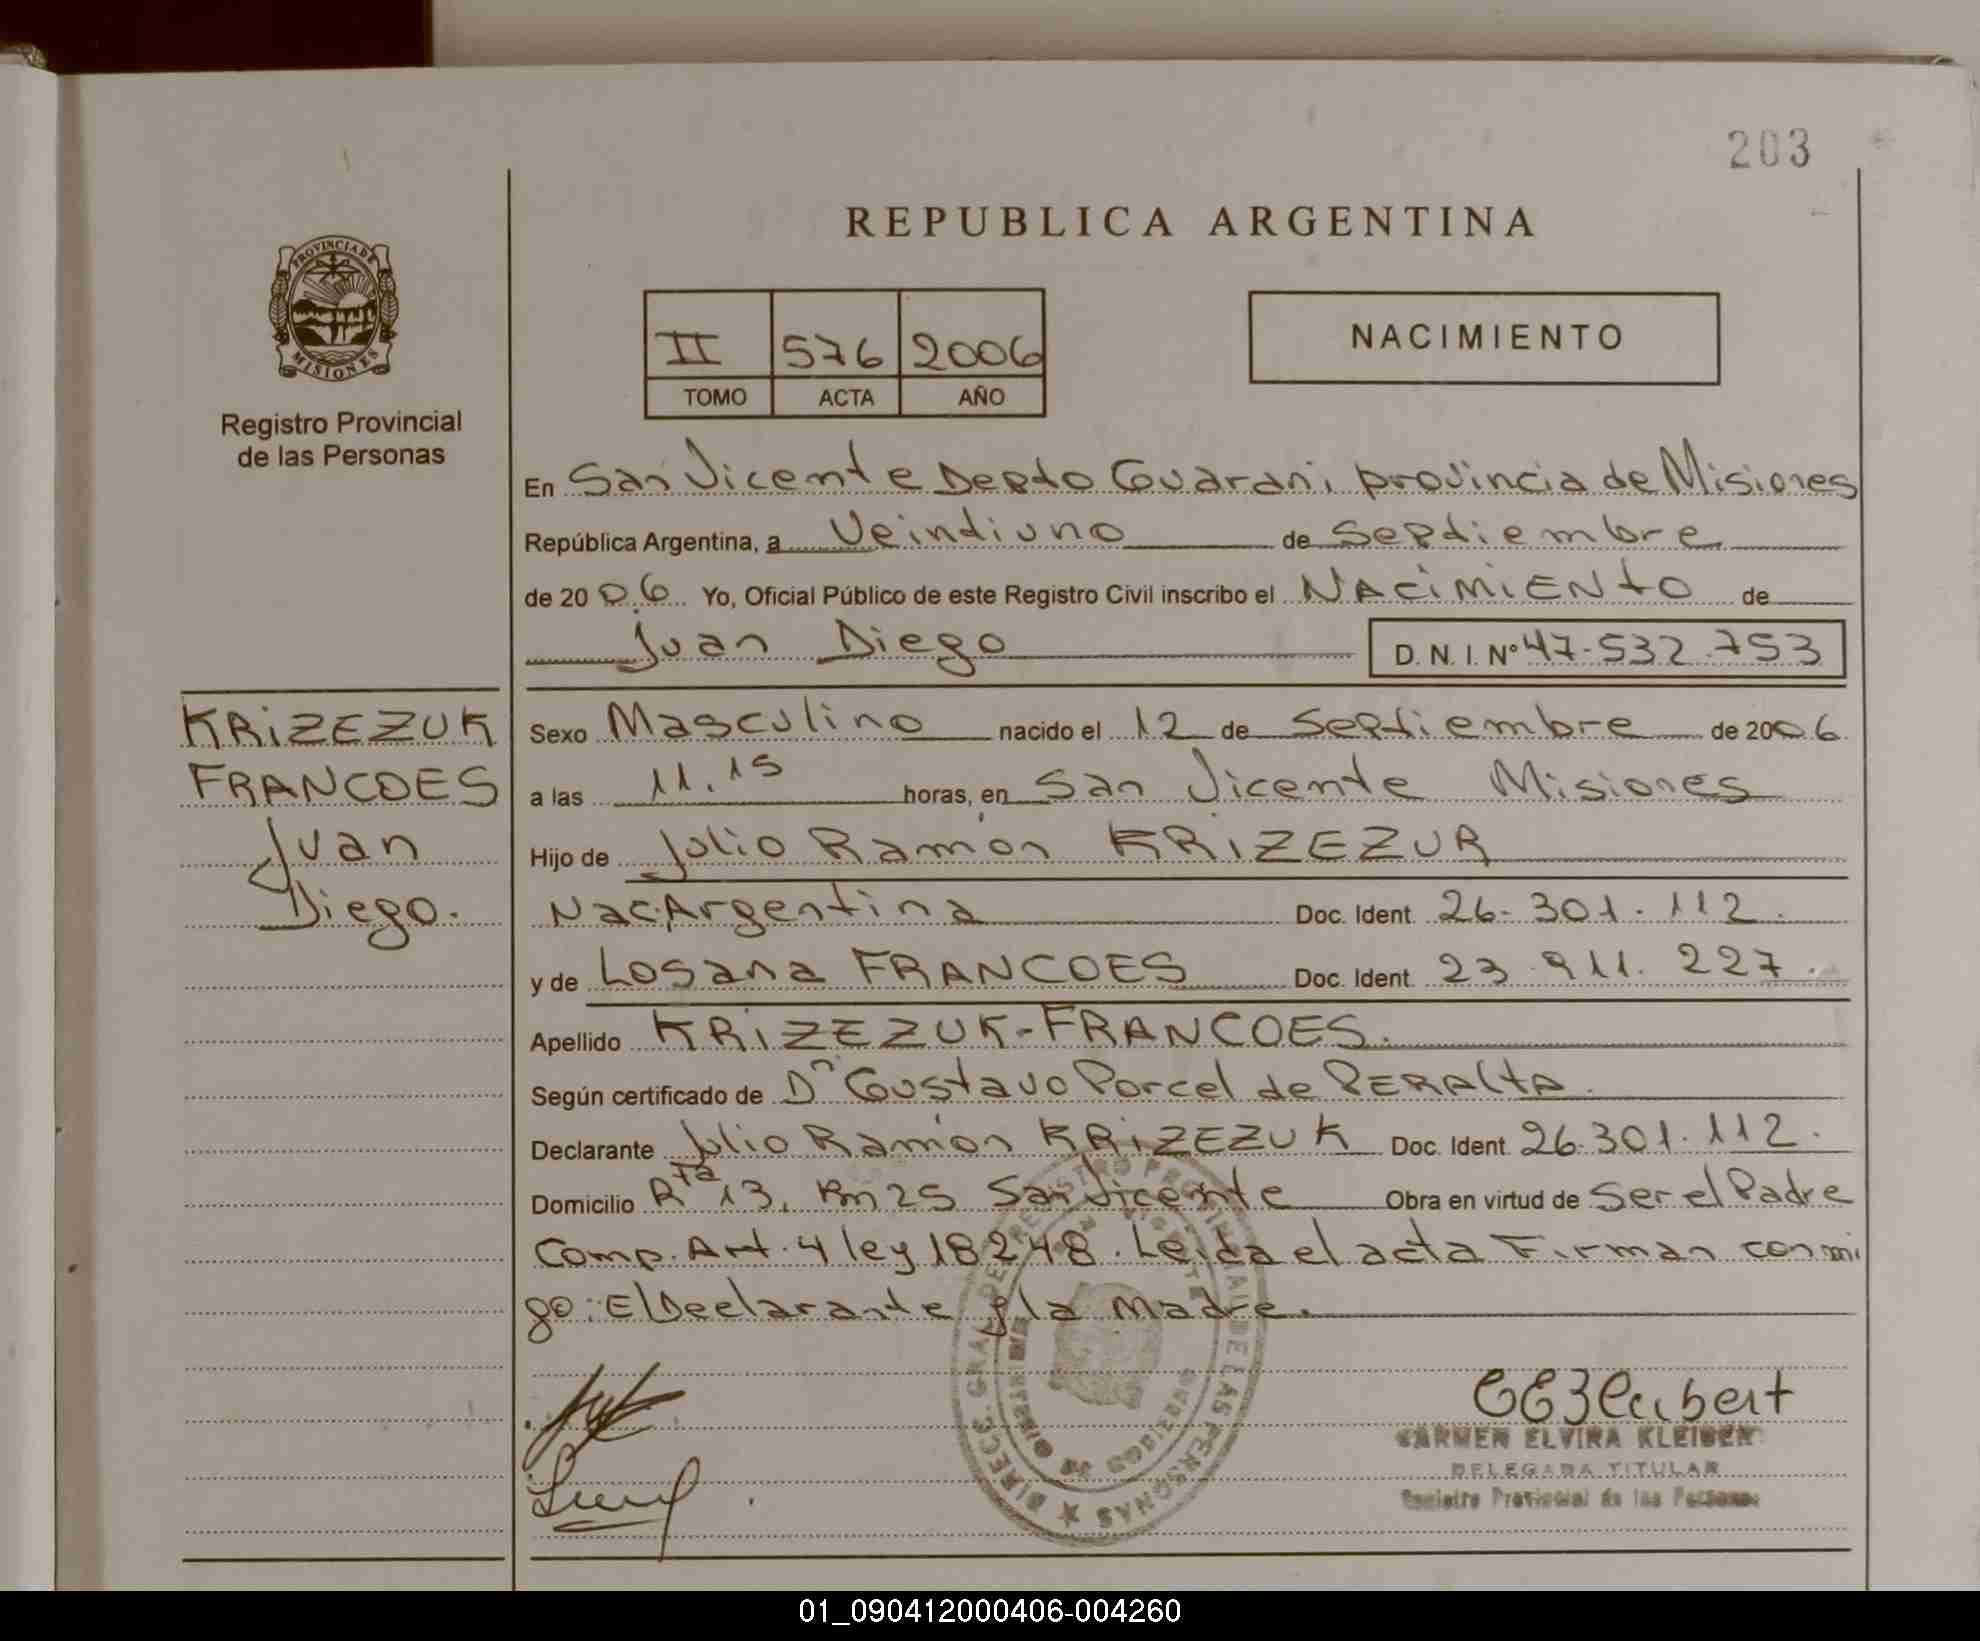 203
REPUBLICA ARGENTINA
PROVINCIA DE
MISIONES
Registro Provincial
de las Personas
II 576 2006
TOMO ACTA AÑO
NACIMIENTO
En San Vicente Depto Guarani, provincia de Misiones
República Argentina, a Veintiuno de Septiembre
de 2006 Yo, Oficial Público de este Registro Civil inscribo el NACIMIENTO de
Juan Diego D. N. I. Nº 47-532.753
KRIZEZUK
FRANCOES
Juan
Diego.
Sexo Masculino nacido el 12 de Septiembre de 2006
a las 11.15 horas, en San Vicente Misiones
Hijo de Julio Ramón KRIZEZUR
Nac.Argentina Doc. Ident. 26-301.112.
y de Losana FRANCOES Doc. Ident. 23.911.227.
Apellido KRIZEZUK-FRANCOES.
Según certificado de Dn Gustavo Porcel de PERALTA.
Declarante Julio Ramón KRIZEZUK Doc. Ident. 26.301.112.
Domicilio Rta 13, Km 25 San Vicente Obra en virtud de Ser el Padre
Comp. Art. 4 ley 18248. Leida el acta Firman conmi
go: El Declarante y la Madre.
DIRECC. GRAL. DEL REGISTRO PROVINCIAL DE LAS PERSONAS
CARMEN ELVIRA KLEIBERT
DELEGADA TITULAR
Registro Provincial de las Personas
01_090412000406-004260